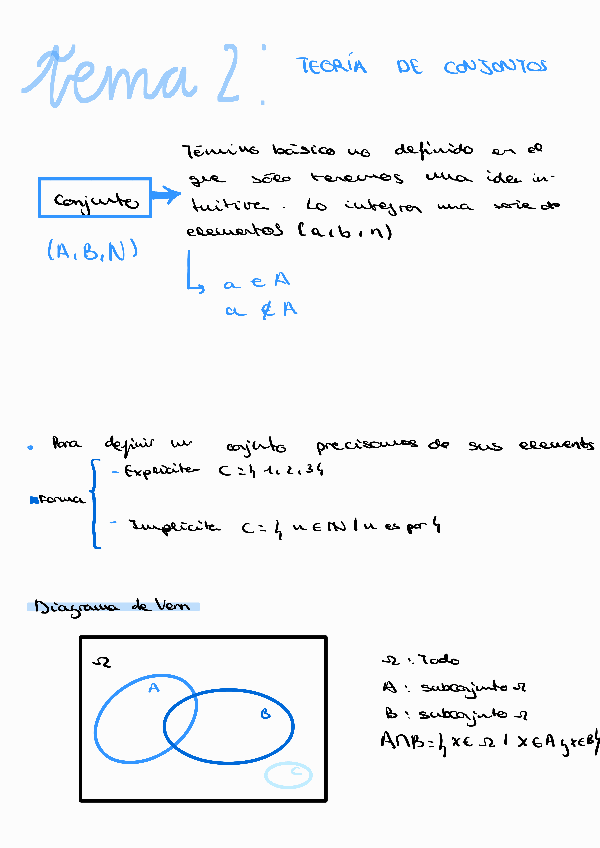 tema 2:
TEORÍA DE CONJONTOS
Término básico no definido en el
que sólo tenemos una idea in-
tuitiva. Lo integran una serie de
elementos (a, b, n)
Conjunto
(A, B, N)
a ∈ A
a ∉ A
• Para definir un conjunto precisamos de sus elements
Forma
- Explícita C = { 1, 2, 3 }
- Implícita C = { n ∈ IN / n es par }
Diagrama de Venn
Ω
A
B
C
Ω : Todo
A : subconjunto Ω
B : subconjunto Ω
A∩B = { x ∈ Ω / x ∈ A y x ∈ B }